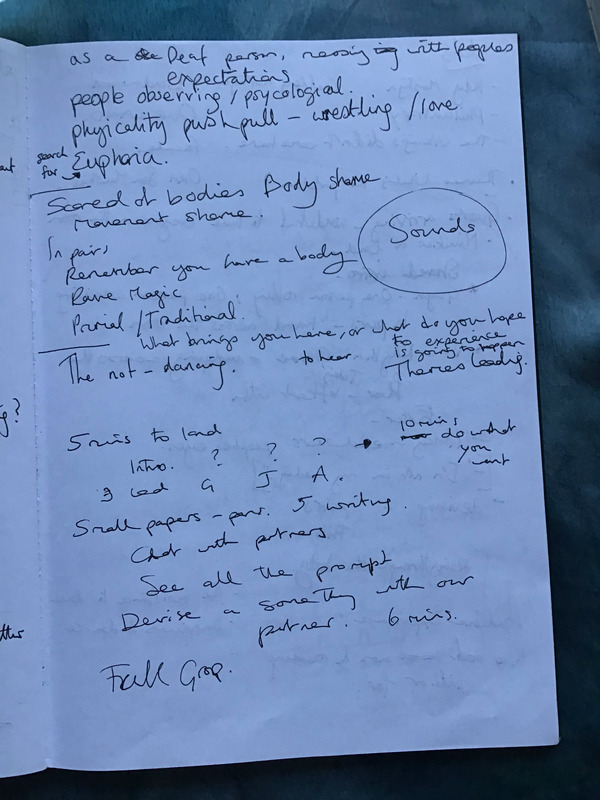 as a Deaf person, messing with peoples
expectations
people observing / psycological.
physicality push pull - wrestling / love
search
for → Euphoria.
Scared of bodies Body shame
Movement shame.
Sounds
In pairs
Remember you have a body
Rave Magic
/ Traditional.
What brings you here, or what do you hope
to experience
to hear is going to happen
The not - dancing. Themes leading.
5 mins to land
Intro. ? ? ? 10 mins
do what
you
want
I lead G J A.
Small papers - pens. 5 writing.
Chat with partners
See all the prompt
Devise a somethig with our
partner. 6 mins.
Full Grop.